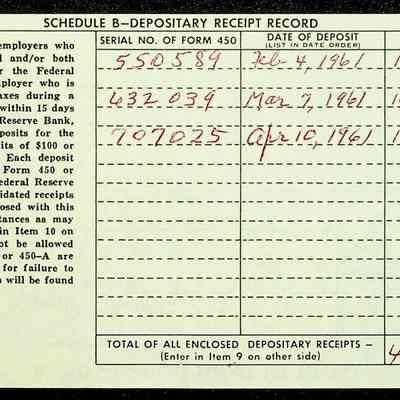 SCHEDULE B—DEPOSITARY RECEIPT RECORD
employers who
d and/or both
r the Federal
ployer who is
axes during a
within 15 days
Reserve Bank,
posits for the
its of $100 or
Each deposit
Form 450 or
ederal Reserve
idated receipts
osed with this
tances as may
in Item 10 on
ot be allowed
or 450–A are
for failure to
s will be found
SERIAL NO. OF FORM 450
DATE OF DEPOSIT
(LIST IN DATE ORDER)
550589 Feb 4, 1961 1
632039 Mar 7, 1961 1
707025 Apr 10, 1961 1
TOTAL OF ALL ENCLOSED DEPOSITARY RECEIPTS –
(Enter in Item 9 on other side)
4